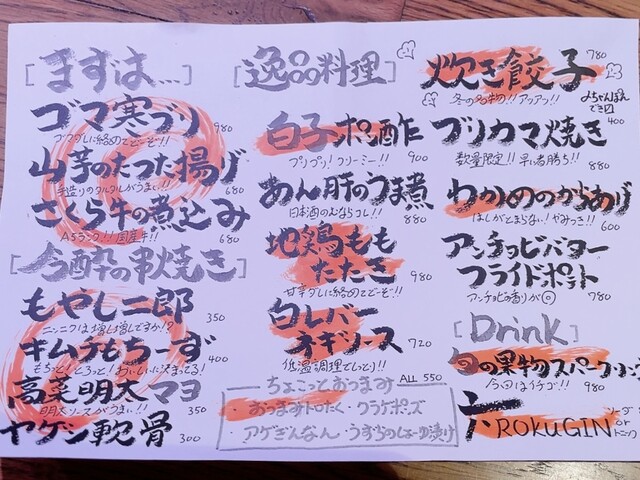 [まずは...]
ゴマ寒ブリ 980
ゴマダレに絡めてどーぞ!!
山芋のたつた揚げ 680
手造りのタルタルがうまい!!
さくら牛の煮込み 680
A5ランク!!国産牛!!
[今酔の串焼き]
もやし二郎 350
ニンニクは増し増しですか!?
キムチもちーず 400
もちっ!とろっ!おいしいに決まってる!
高菜明太マヨ 350
明太ソースがうまい!!
ヤゲン軟骨 300
[逸品料理]
白子ポン酢 900
プリップリ!クリーミー!!
あん肝のうま煮 880
日本酒のむならコレ!!
地鶏もも
たたき 980
甘辛ダレに絡めてどーぞ!!
白レバー
ネギソース 720
低温調理でしっとり!!
ちょこっとおつまみ ALL 550
・おつまみトロたく・クラゲポンズ
・アゲぎんなん・うずらのしょーゆ漬け
炊き餃子 780
冬の名物!!アツアツ!!
〆ちゃんぽん
400
ブリカマ焼き 880
数量限定!!早い者勝ち!!
わかめのからあげ 600
はしがとまらない!やみつき!!
アンチョビバター
フライドポテト 780
アンチョビの香りが◎
[Drink]
旬の果物スパークリング 980
今回はイチゴ!!
六 ROKUGIN
ソーダ
or
トニック